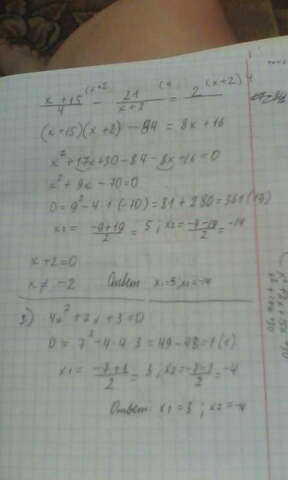 x+15 (x+2 / 4 - 21 / x+2 (4 = 2 (x+2) 4
(x+15)(x+2) - 84 = 8x+16
x² + 17x + 30 - 84 - 8x - 16 = 0
x² + 9x - 70 = 0
D = 9² - 4·1·(-70) = 81 + 280 = 361 (19)
x1 = -9+19 / 2 = 5 ; x2 = -9-19 / 2 = -14
x+2=0
x ≠ -2 Ответ x1=5; x2=-14
2) 4x² + 7x + 3 = 0
D = 7² - 4·4·3 = 49 - 48 = 1 (1)
x2 = -4
Ответ x1 = 3 ; x2 = -4